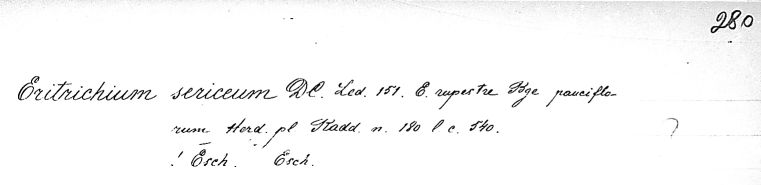 280
Eritrichium sericeum DC. Led. 151. E. rupestre Bge pauciflo-
rum Herd. pl Radd. n. 180 l c. 540. ?
! Esch. Esch.